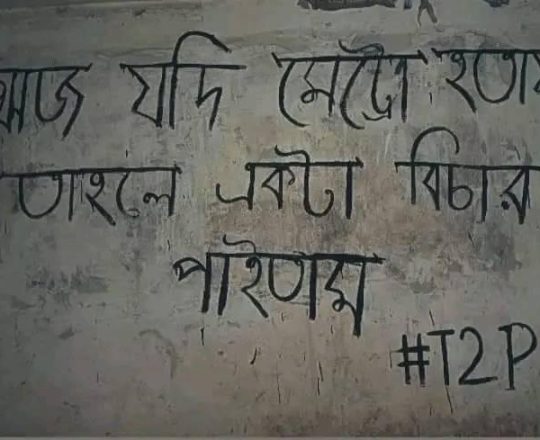 আজ যদি মেট্রো হতাম
তাহলে একটা বিচার
পাইতাম
#T2P